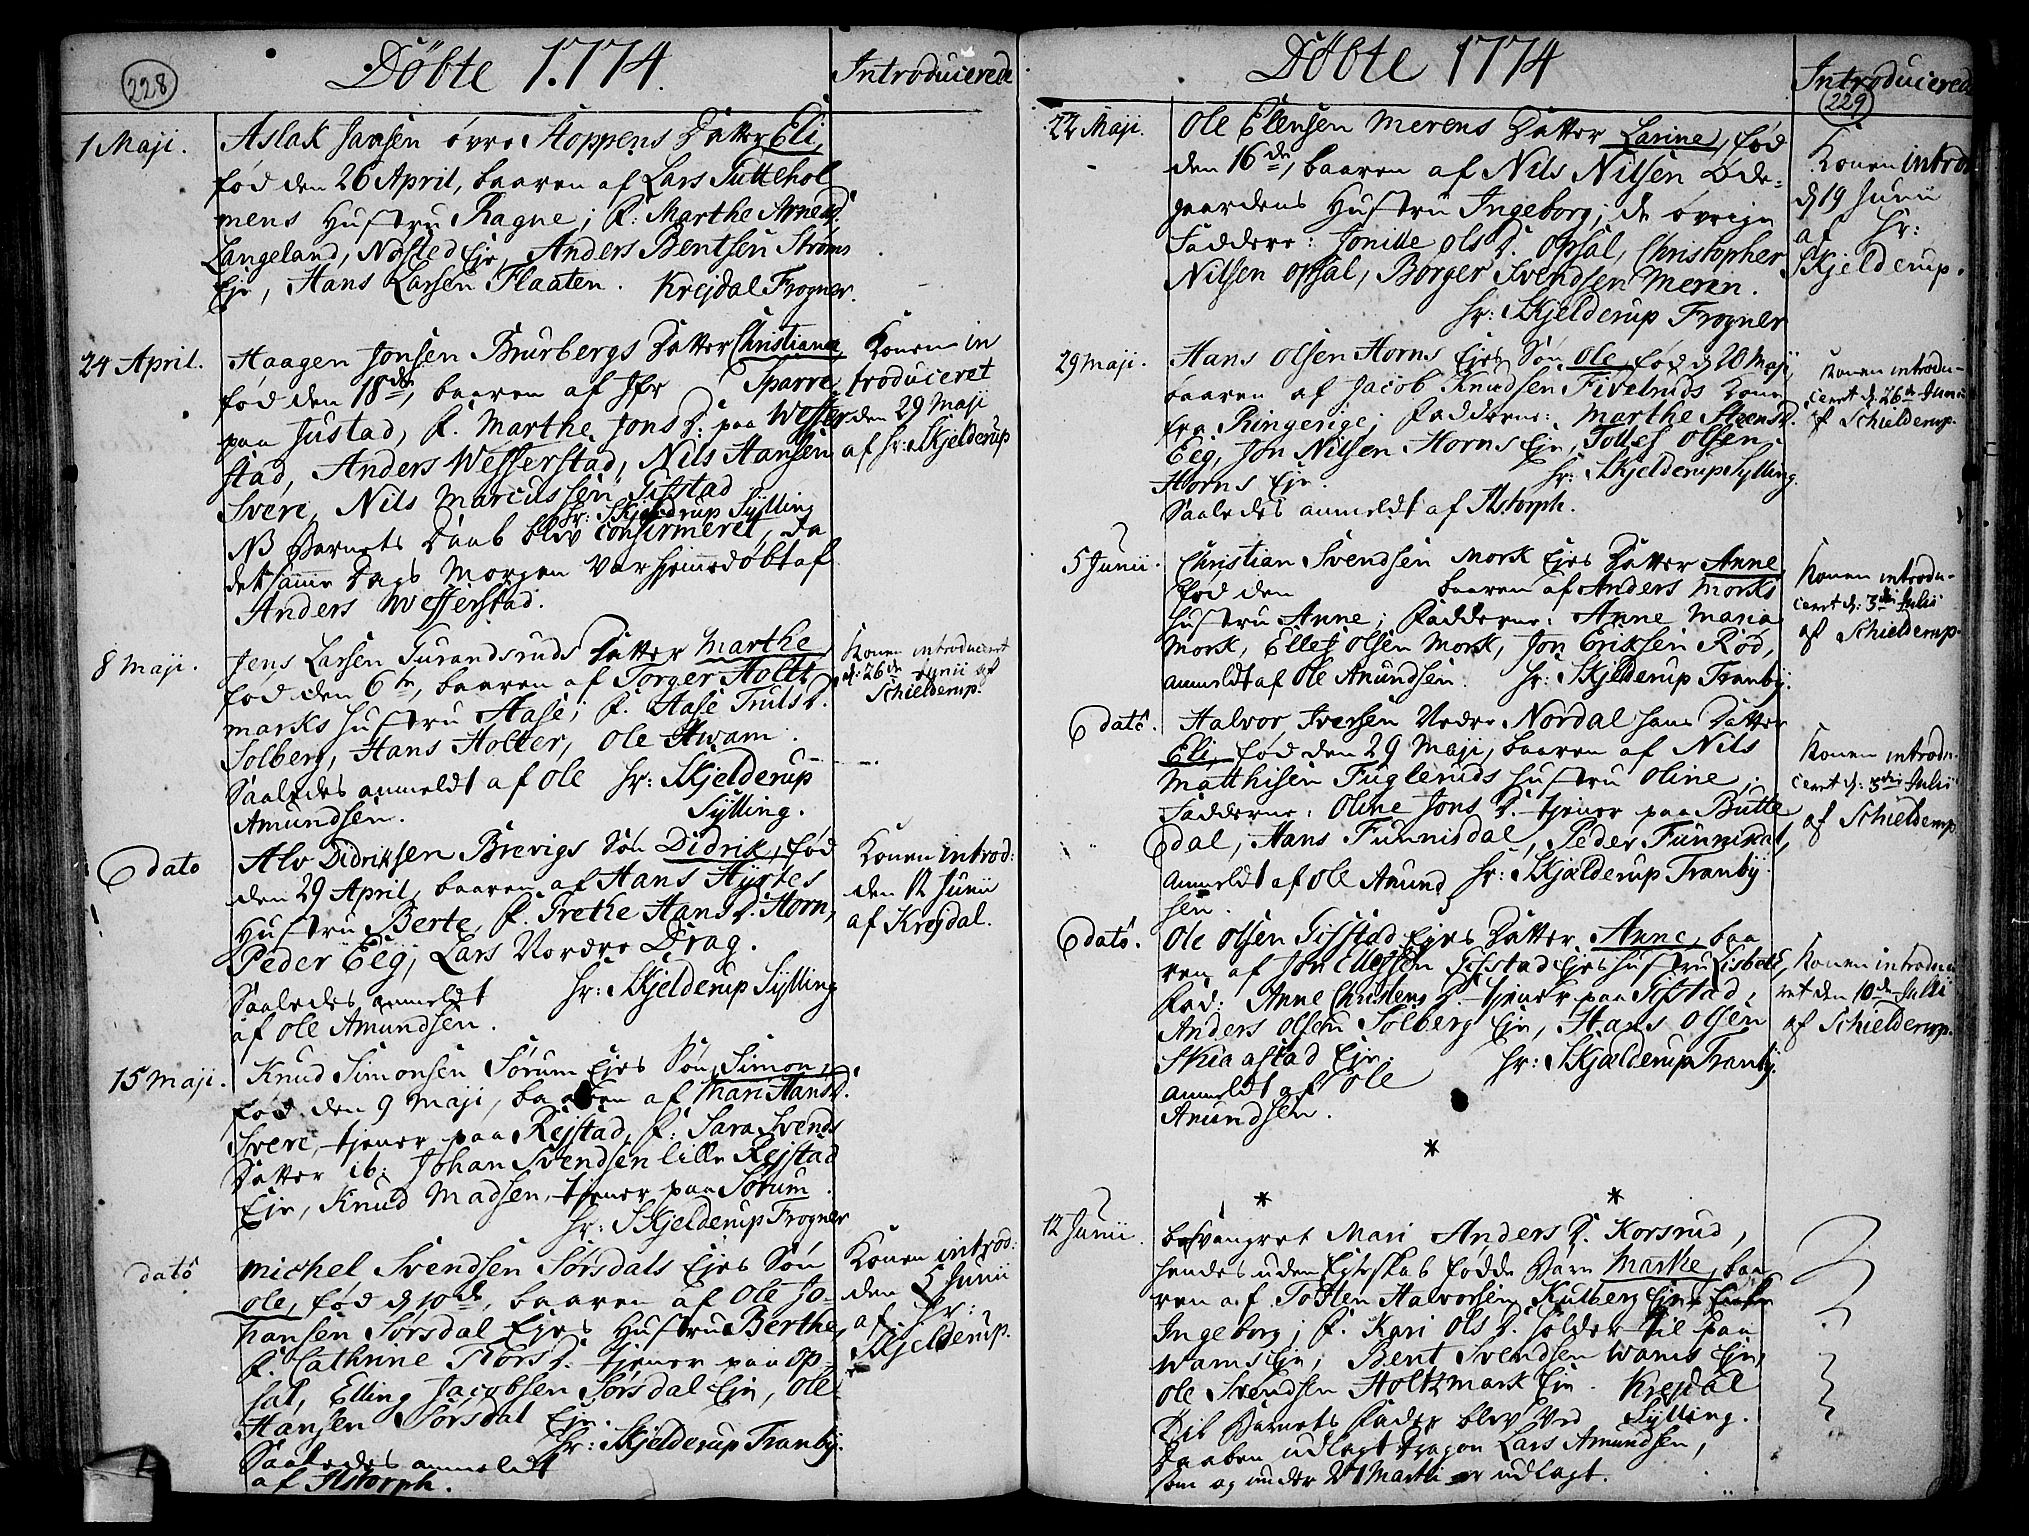 228
Döbte 1774.
Introducerede
1 Maji.
Aslak Jansen övre Stoppens Datter Eli,
fød den 26 April, baaren af Lars Tuttehol
mens Hustru Ragne; F. Marthe Arnesd.
Langeland, Nøsted Eje, Anders Bentsen Ströms
Eje, Hans Larsen Flaaten. Krejdal Frogner.
24 April.
Haagen Jonsen Burbergs Datter Christiana,
fød den 18de, baaren af Jfr Sparre
paa Justad, F. Marthe Jons D. paa Wesser
stad, Anders Wesserstad, Nils Hansen
Svere, Nils Marcussen Gifstad
Hr: Skjelderup Sylling
NB Barnets Daab blev confirmeret, da
det samme Dags Morgen var hjemmedøbt af
Anders Wesserstad.
Konen in
troduceret
den 29 Maji
af Hr: Skjelderup
8 Maji.
Jens Larsen Gurandsruds Datter Marthe
fød den 6te, baaren af Torger Holt
marks Hustru Aase; F. Aase Truls D.
Solberg, Hans Holter, Ole Hwam.
Saaledes anmeldt af Ole Hr: Skjelderup
Amundsen. Sylling.
Konen introduceret
d: 26de Junii af
Schielderup.
dato
Alv Didriksen Brevigs Søn Didrik, fød
den 29 April, baaren af Hans Hyrtes
Hustru Berte, F. Grethe Hans D. Horn,
Peder Eeg, Lars Nordre Drag.
Saaledes anmeldt Hr: Skjelderup Sylling
af Ole Amundsen.
Konen introd:
den 12 Junii
af Krejdal.
15 Maji.
Knud Simonsen Sørum Ejes Søn Simon,
fød den 9 Maji, baaren af Mari Hans D.
Svere, tjener paa Rejstad, F: Sara Svends
Datter ib: Johan Svendsen lille Rejstad
Eje, Knud Madsen, tjener paa Sörum.
Hr: Skjelderup Frogner
dato
Michel Svendsen Sörsdals Ejes Søn
Ole, fød d 10de, baaren af Ole Jo-
hansen Sørsdal Ejes Hustru Berthe,
F. Cathrine Thors D. tjener paa Op-
sal, Elling Jacobsen Sørsdal Eje, Ole
Hansen Sørsdal Eje.
Hr: Skjelderup Tranby.
Saaledes anmeldt
af Astorph.
Konen introd:
den 5 Junii
af Hr:
Skjelderup.
229
Döbte 1774
Introducerede
22 Maji.
Ole Ellensen Merens Datter Larine, fød
den 16de, baaren af Nils Nilsen Øde-
gaardens Hustru Ingeborg; de øvrige
Faddere: Jonille Ols D. Opsal, Christopher
Nilsen Opsal, Borger Svendsen Meren.
Hr: Skjelderup Frogner
Konen introd.
d 19 Junii
af Hr:
Skjelderup.
29 Maji.
Hans Olsen Horns Ejes Søn Ole, fød d 20 Maji,
baaren af Jacob Knudsen Fivelruds Kone
fra Ringerige; Fadderne: Marthe Steens D.
Eeg, Jon Nilsen Horns Eje, Tollef Olsen
Horns Eje. Hr: Skjelderup Sylling.
Saaledes anmeldt af Astorph.
Konen introdu-
ceret d. 26de Junii
af Schielderup.
5 Junii.
Christian Svendsen Mork Ejes Datter Anne,
fød den baaren af Anders Morks
Hustru Anne; Fadderne: Anne Maria
Mork, Ellef Olsen Mork, Jon Eriksen Rød,
anmeldt af Ole Amundsen. Hr: Skjelderup Tranby.
Konen introdu-
ceret d: 3die Julii
af Schielderup.
dato.
Halvor Iversen Nedre Nordal hans Datter
Eli, fød den 29 Maji, baaren af Nils
Matthisen Fugleruds Hustru Oline,
Fadderne: Oline Jons D. tjener paa Butte
dal, Hans Funnisdal, Peder Funnisdal,
Anmeldt af Ole Amund Hr: Skjælderup Tranby.
sen.
Konen introdu-
ceret d: 3die Julii
af Schielderup
dato.
Ole Olsen Gifstad Ejes Datter Anne, baa
ren af Jon Ellefsen Gifstad Ejes Hustru Lisbeth,
Fad: Anne Christens D. tjener paa Gifstad,
Anders Olsen Solberg Eje, Hans Olsen
Skiaastad Eje. Hr: Skjælderup Tranby.
anmeldt af Ole
Amundsen.
Konen introdu
ret den 10de Julii
af Schielderup.
*
* *
12 Junii.
besvangret Mari Anders D. Korsrud,
hendes uden Egteskab fødde Barn Marthe, baa
ren af Tosten Halvorsen Kulberg Ejes
Ingeborg; F. Kari Ols D. holder til paa
Wams Eje, Bent Svendsen Wams Eje,
Ole Svendsen Holtzmark Eje. Krejdal
Til Barnets Fader blev ved Sylling.
Daaben udlagt Dragon Lars Amundsen,
som og under 21 Martii er udlagt.